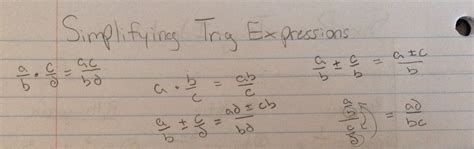 Simplifying Trig Expressions
a/b · c/d = ac/bd
a · b/c = ab/c
a/b ± c/b = a±c/b
a/b ± c/d = ad ± cb/bd
a/b / c/d = ad/bc